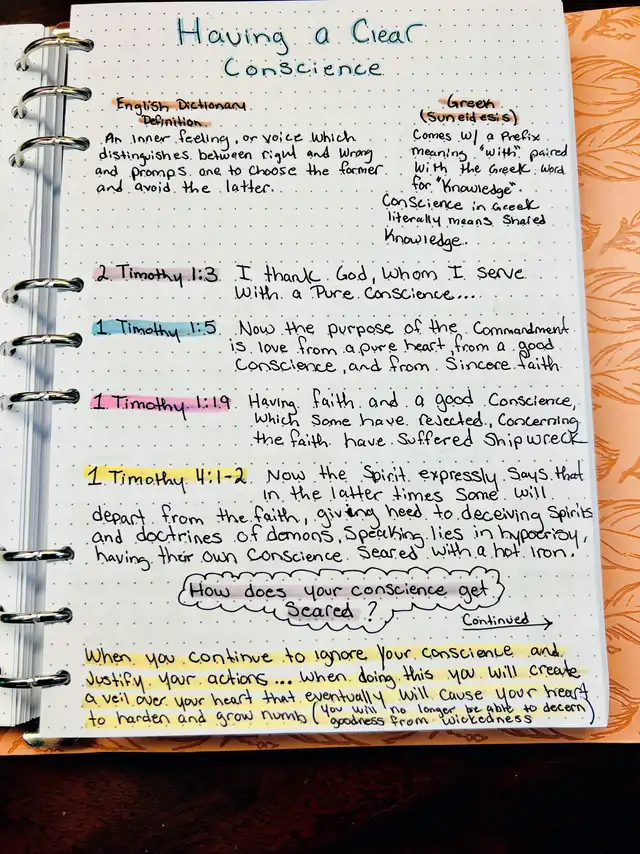 Having a Clear
Conscience
English Dictionary
Definition
An inner feeling, or voice which
distinguishes between right and wrong
and promps one to choose the former
and avoid the latter.
Greek
(Suneidesis)
Comes w/ a Prefix
meaning "with" paired
with the Greek word
for "Knowledge".
Conscience in Greek
literally means Shared
Knowledge.
2 Timothy 1:3 I thank God, whom I serve
with a Pure Conscience...
1 Timothy 1:5 Now the purpose of the Commandment
is love from a pure heart, from a good
Conscience, and from Sincore faith
1 Timothy 1:19 Having faith and a good Conscience,
which Some have rejected, Concerning
the faith have Suffered Shipwreck
1 Timothy 4:1-2 Now the Spirit expressly Says that
in the latter times Some will
depart from the faith, giving heed to deceiving Spirits
and doctrines of demons, Speaking lies in hypocrisy,
having their own Conscience Seared with a hot Iron.
How does your conscience get
Seared?
Continued
When you continue to ignore your conscience and
Justify your actions... When doing this you will create
a veil over your heart that eventually will cause your heart
to harden and grow numb (you will no longer be able to decern
goodness from wickedness)